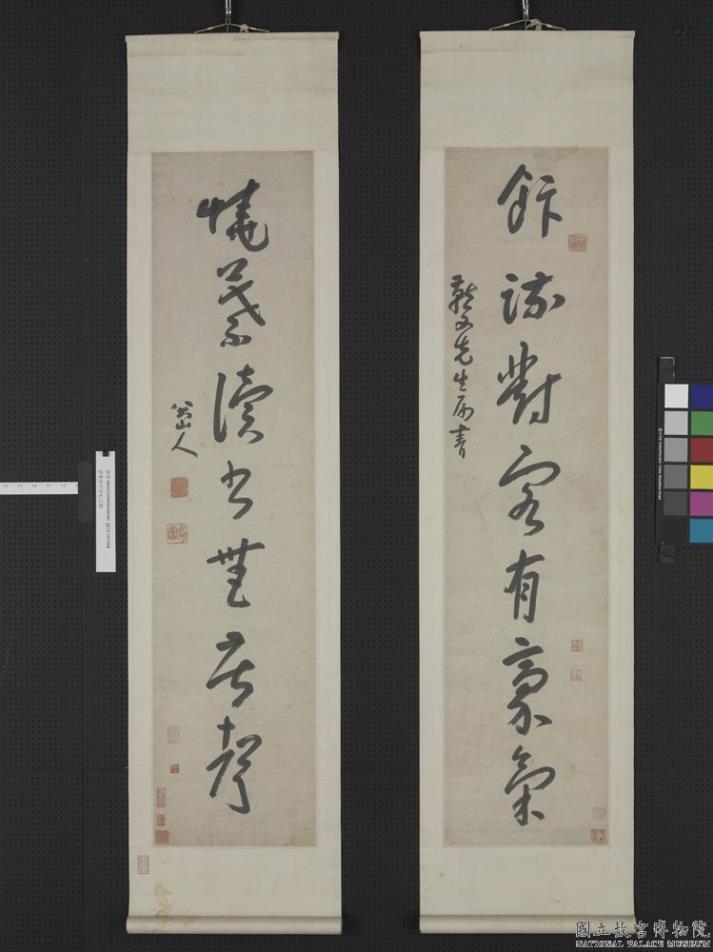 飰疏對客有豪氣
先生屬書
燒葉讀書無苦聲
八大山人
國立故宮博物院
NATIONAL PALACE MUSEUM